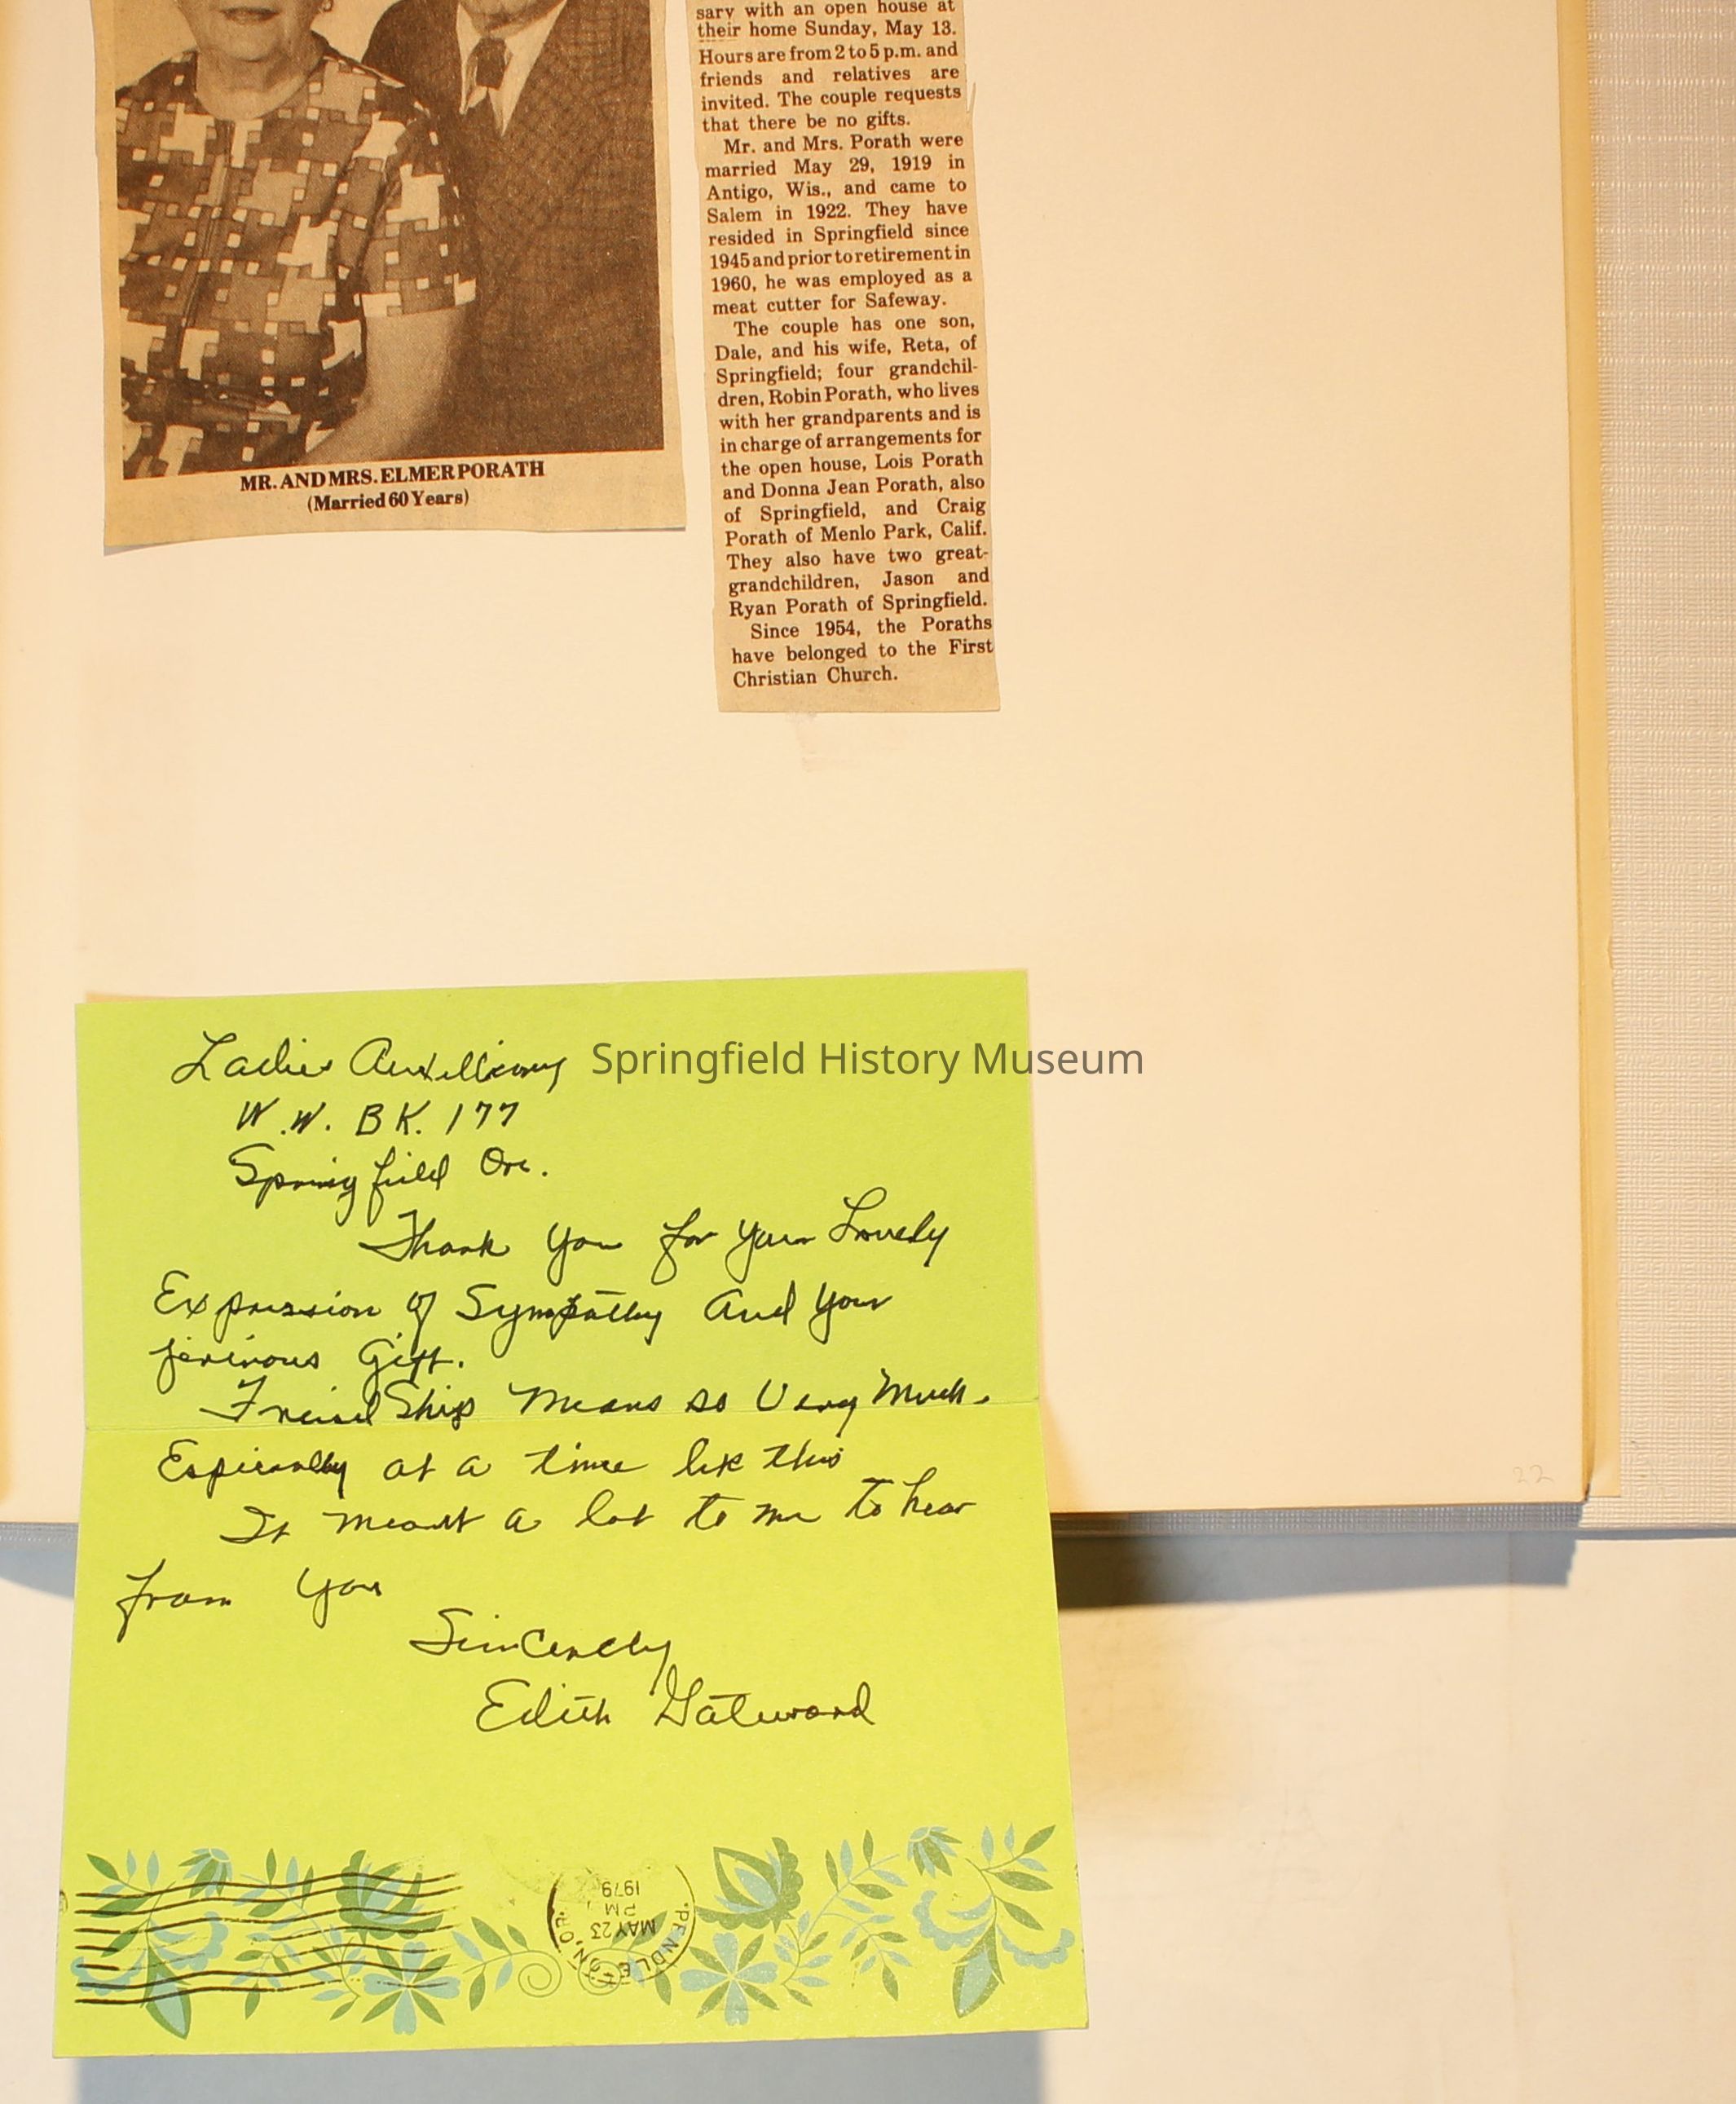 sary with an open house at
their home Sunday, May 13.
Hours are from 2 to 5 p.m. and
friends and relatives are
invited. The couple requests
that there be no gifts.
Mr. and Mrs. Porath were
married May 29, 1919 in
Antigo, Wis., and came to
Salem in 1922. They have
resided in Springfield since
1945 and prior to retirement in
1960, he was employed as a
meat cutter for Safeway.
The couple has one son,
Dale, and his wife, Reta, of
Springfield; four grandchil-
dren, Robin Porath, who lives
with her grandparents and is
in charge of arrangements for
the open house, Lois Porath
and Donna Jean Porath, also
of Springfield, and Craig
Porath of Menlo Park, Calif.
They also have two great-
grandchildren, Jason and
Ryan Porath of Springfield.
Since 1954, the Poraths
have belonged to the First
Christian Church.
MR. AND MRS. ELMER PORATH
(Married 60 Years)
Springfield History Museum
Ladies Auxilliary
W.W. BK. 177
Springfield Ore.
Thank You for Your Lovely
Expression of Sympathy And Your
Gift.
FreindShip Means so Very Much.
at a time lik this
It meant a lot to me to hear
from You
Sincerely
Edith Gateward
PENDLETON, OR.
MAY 23
PM
1979
22